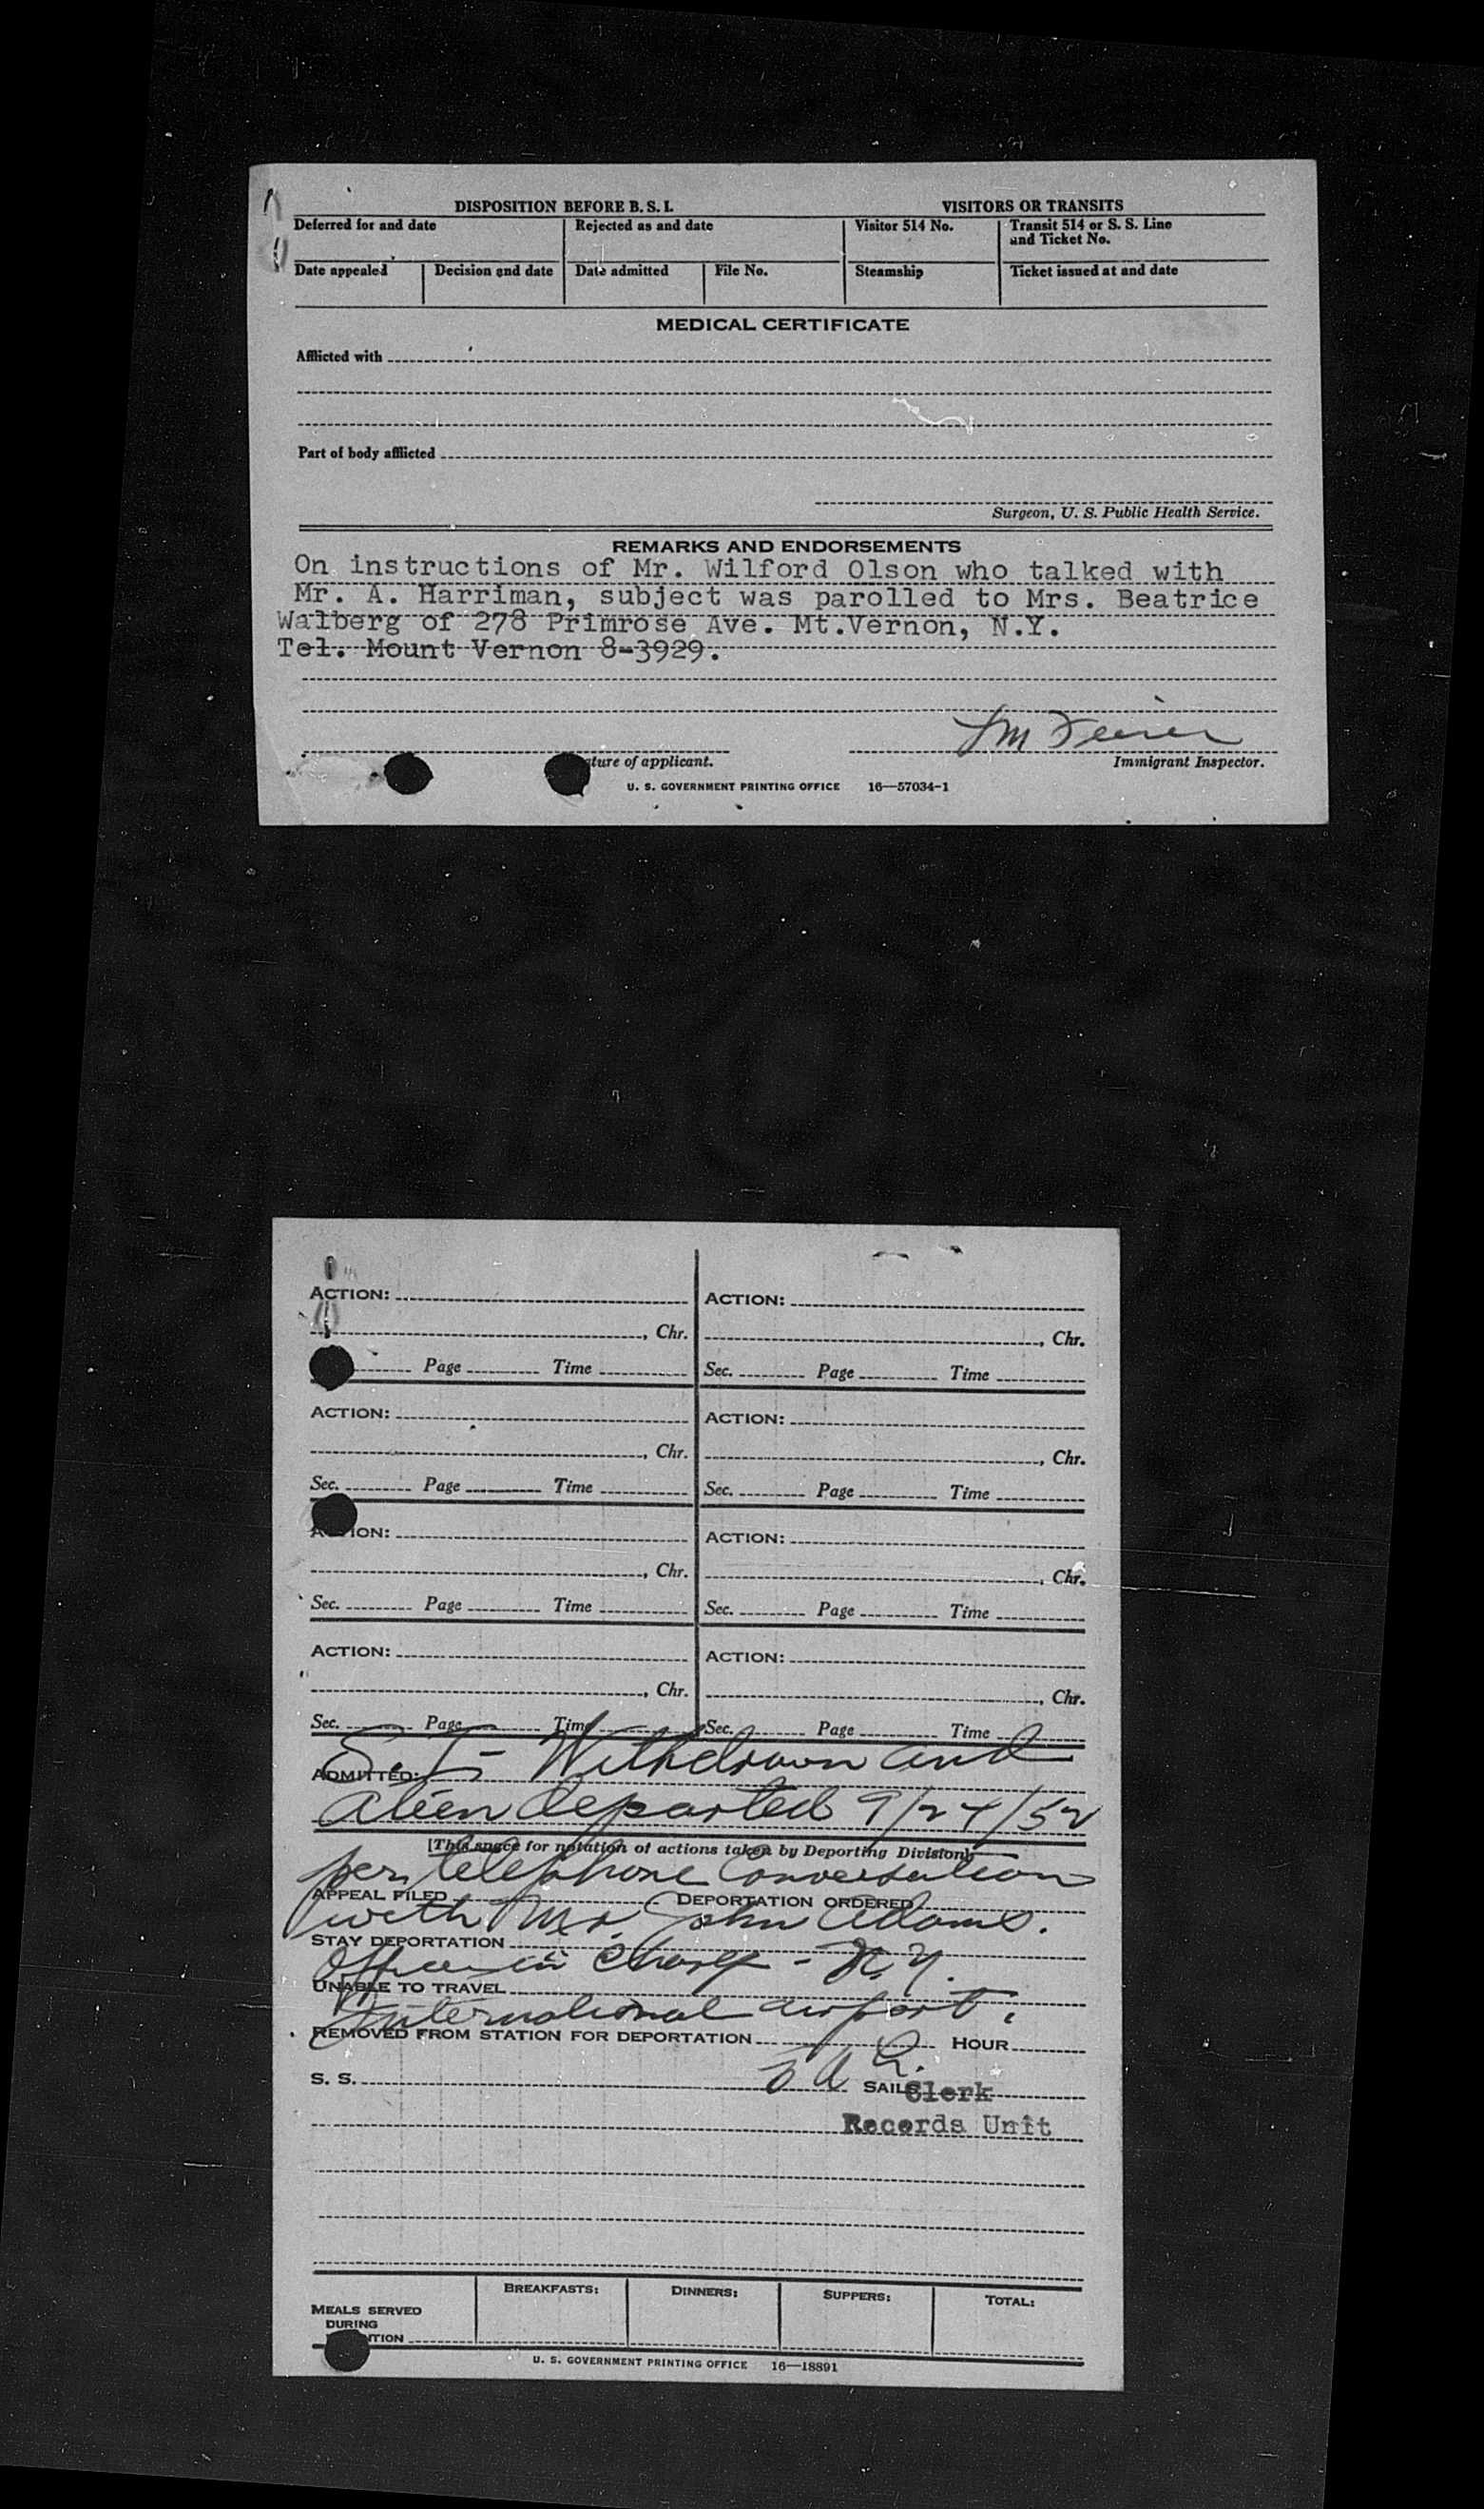 DISPOSITION BEFORE B. S. I. VISITORS OR TRANSITS
Deferred for and date Rejected as and date Visitor 514 No. Transit 514 or S. S. Line and Ticket No.
Date appealed Decision and date Date admitted File No. Steamship Ticket issued at and date
MEDICAL CERTIFICATE
Afflicted with
Part of body afflicted
Surgeon, U. S. Public Health Service.
REMARKS AND ENDORSEMENTS
On instructions of Mr. Wilford Olson who talked with
Mr. A. Harriman, subject was parolled to Mrs. Beatrice
Walberg of 278 Primrose Ave. Mt.Vernon, N.Y.
Tel. Mount Vernon 8-3929.
ture of applicant. Immigrant Inspector.
U. S. GOVERNMENT PRINTING OFFICE 16—57034-1
ACTION: ACTION:
, Chr. , Chr.
Page Time Sec. Page Time
ACTION: ACTION:
, Chr. , Chr.
Sec. Page Time Sec. Page Time
ACTION: ACTION:
, Chr. , Chr.
Sec. Page Time Sec. Page Time
ACTION: ACTION:
, Chr. , Chr.
Sec. Page Time Sec. Page Time
Withdrawn and
ADMITTED:
alien departed 9/24/52
[This space for notation of actions taken by Deporting Division]
per telephone Conversation
APPEAL FILED DEPORTATION ORDERED
with Mr. John Adams.
STAY DEPORTATION
Officer in Charge - N.Y.
UNABLE TO TRAVEL
International airport.
REMOVED FROM STATION FOR DEPORTATION HOUR
S. S. SAILS
Clerk
Records Unit
BREAKFASTS: DINNERS: SUPPERS: TOTAL:
MEALS SERVED
DURING
TION
U. S. GOVERNMENT PRINTING OFFICE 16—18891